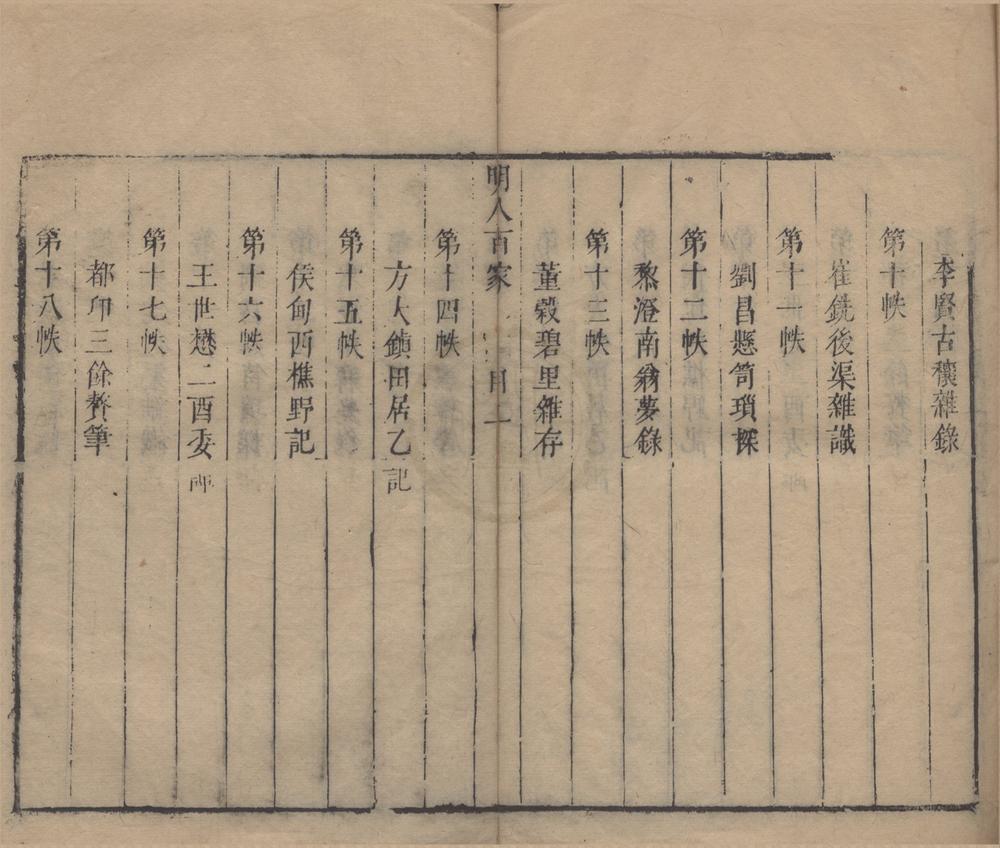 李賢古穰雜錄
第十帙
崔銑後渠雜識
第十一帙
劉昌懸笥瑣探
第十二帙
黎澄南翁夢錄
第十三帙
董穀碧里雜存
明人百家 目二
第十四帙
方大鎮田居乙記
第十五帙
侯甸西樵野記
第十六帙
王世懋二酉委
第十七帙
都卬三餘贅筆
第十八帙